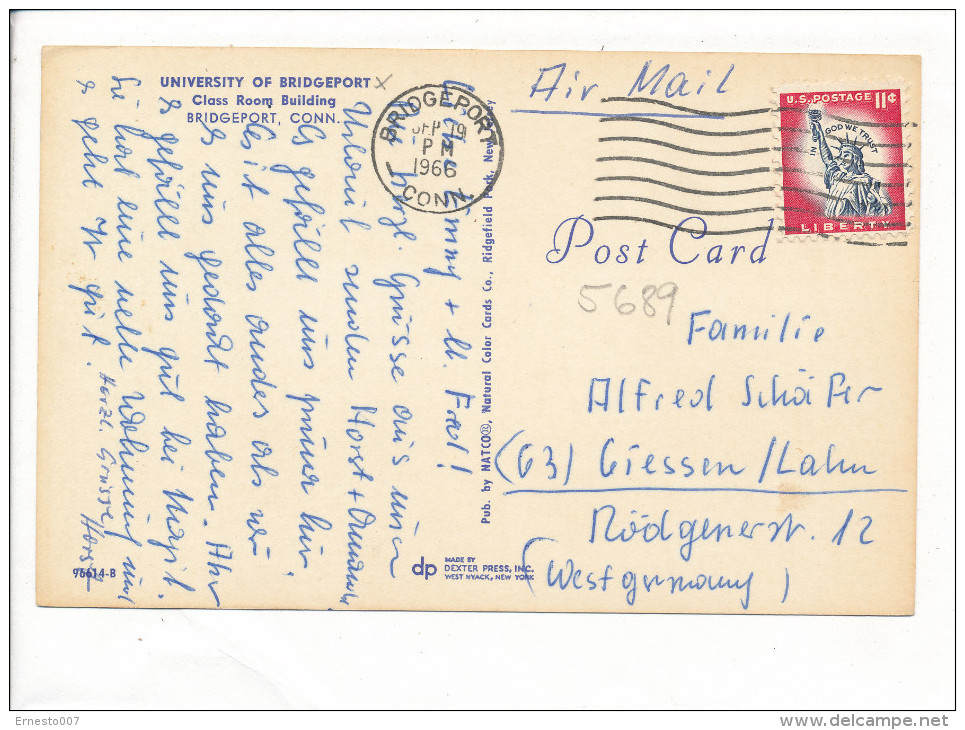 UNIVERSITY OF BRIDGEPORT
Class Room Building
BRIDGEPORT, CONN.
BRIDGEPORT
SEP 19
PM
1966
CONN.
Air Mail
U.S. POSTAGE 11¢
IN GOD WE TRUST
LIBERTY
Post Card
5689
Familie
Alfred Schäfer
(63) Giessen/Lahn
Rödgenerstr. 12
(Westgermany)
+ lb. Fred!
herzl. Grüsse aus
senden Horst +
Es gefällt uns prima hier.
Es ist alles anders als wir
es uns gedacht haben. Aber
es gefällt uns gut bei
Sie hat eine nette Wohnung und
es geht ihr gut.
Herzl. Grüsse
Horst
Pub. by NATCO®, Natural Color Cards Co., Ridgefield Park, New Jersey
dp
MADE BY
DEXTER PRESS, INC.
WEST NYACK, NEW YORK
96614-B
Ernesto007
delcampe.net